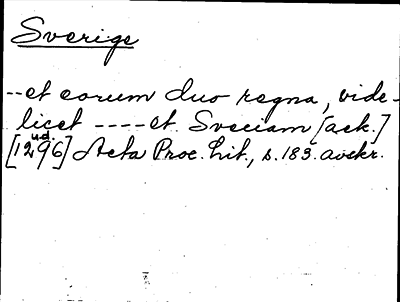 Sverige
--et eorum duo regna, vide-
licet ----et Sveciam [ack.]
ud.
[1296] Acta Proc. Lit., s. 183. avskr.